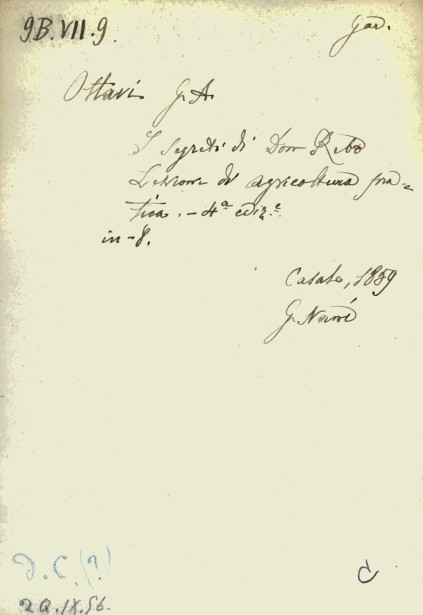 9B.VII.9. Gad.
Ottavi G. A.
I Segreti di Don Rebo
Lezioni di agricoltura pra=
tica. - 4ª ediz.e
in-8.
Casale, 1859
G. Nani
D.C.(?)
C
20.IX.56.